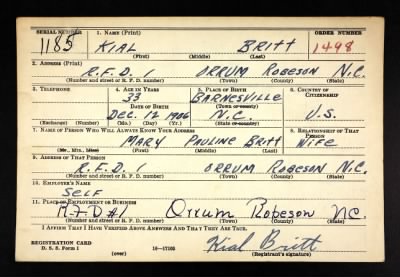 SERIAL NUMBER 1. NAME (Print) ORDER NUMBER
1185 KIAL BRITT 1498
(First) (Middle) (Last)
2. ADDRESS (Print)
R.F.D. 1 ORRUM ROBESON N.C.
(Number and street or R. F. D. number) (Town) (County) (State)
3. TELEPHONE 4. AGE IN YEARS 5. PLACE OF BIRTH 6. COUNTRY OF CITIZENSHIP
33 BARNESVILLE
DATE OF BIRTH (Town or county)
DEC. 12 1906 N.C. U.S.
(Exchange) (Number) (Mo.) (Day) (Yr.) (State or country)
7. NAME OF PERSON WHO WILL ALWAYS KNOW YOUR ADDRESS 8. RELATIONSHIP OF THAT PERSON
MARY PAULINE BRITT WIFE
(Mr., Mrs., Miss) (First) (Middle) (Last)
9. ADDRESS OF THAT PERSON
R.F.D. 1 ORRUM ROBESON N.C.
(Number and street or R. F. D. number) (Town) (County) (State)
10. EMPLOYER'S NAME
SELF
11. PLACE OF EMPLOYMENT OR BUSINESS
R.F.D #1 Orrum Robeson NC.
(Number and street or R. F. D. number) (Town) (County) (State)
I AFFIRM THAT I HAVE VERIFIED ABOVE ANSWERS AND THAT THEY ARE TRUE.
REGISTRATION CARD
D. S. S. Form 1 16—17105 Kial Britt
(over) (Registrant's signature)